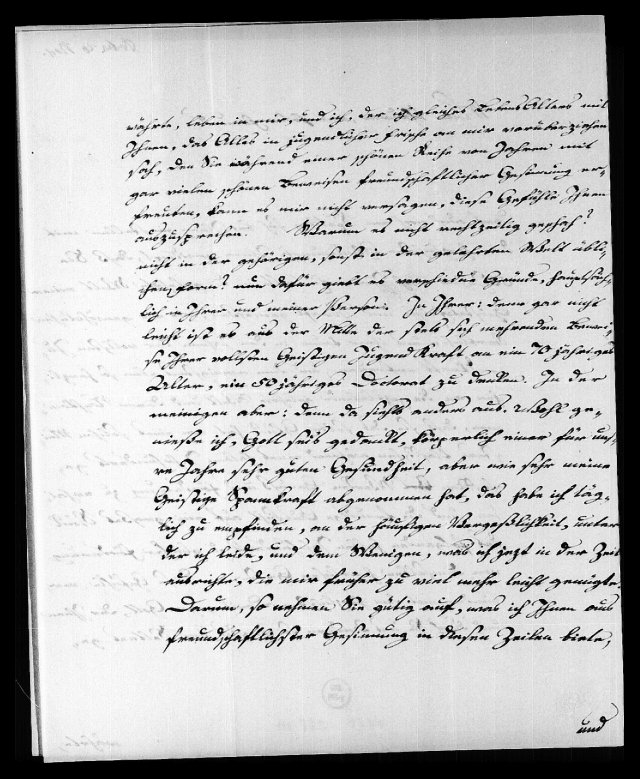 währte, leben in mir, und ich, der ich gleiches LebensAlters mit
Ihnen, das Alles in jugendlicher Frische an mir vorüberziehen
sah, den Sie während einer schönen Reihe von Jahren mit
gar vielen schönen Beweisen freundschaftlicher Gesinnung er-
freuten, kann es mir nicht versagen, diese Gefühle Ihnen
auszusprechen. Warum es nicht rechtzeitig geschah?
nicht in der gehörigen, sonst in der gelehrten Welt übli-
chen Form? nun dafür giebt es verschiedne Gründe, hauptsäch-
lich in Ihrer und meiner Person. In Ihrer: denn gar nicht
leicht ist es aus der Mitte der stets sich mehrenden Bewei-
se Ihrer vollsten Geistigen Jugend Kraft an ein 70 jähriges
Alter, ein 50 jähriges Doctorat zu denken. In der
meinigen aber: denn da siehts anders aus. Wohl ge-
nieße ich, Gott seis gedankt, körperlich einer für uns-
re Jahre sehr guten Gesundheit, aber wie sehr meine
Geistige Spannkraft abgenommen hat, das habe ich täg-
lich zu empfinden, an der häufigen Vergeßlichkeit, unter
der ich leide, und dem Wenigen, was ich jetzt in der Zeit
ausrichte, die mir früher zu viel mehr leicht genügte.
Darum, so nehmen Sie gütig auf, was ich Ihnen aus
freundschaftlichster Gesinnung in diesen Zeilen biete,
und